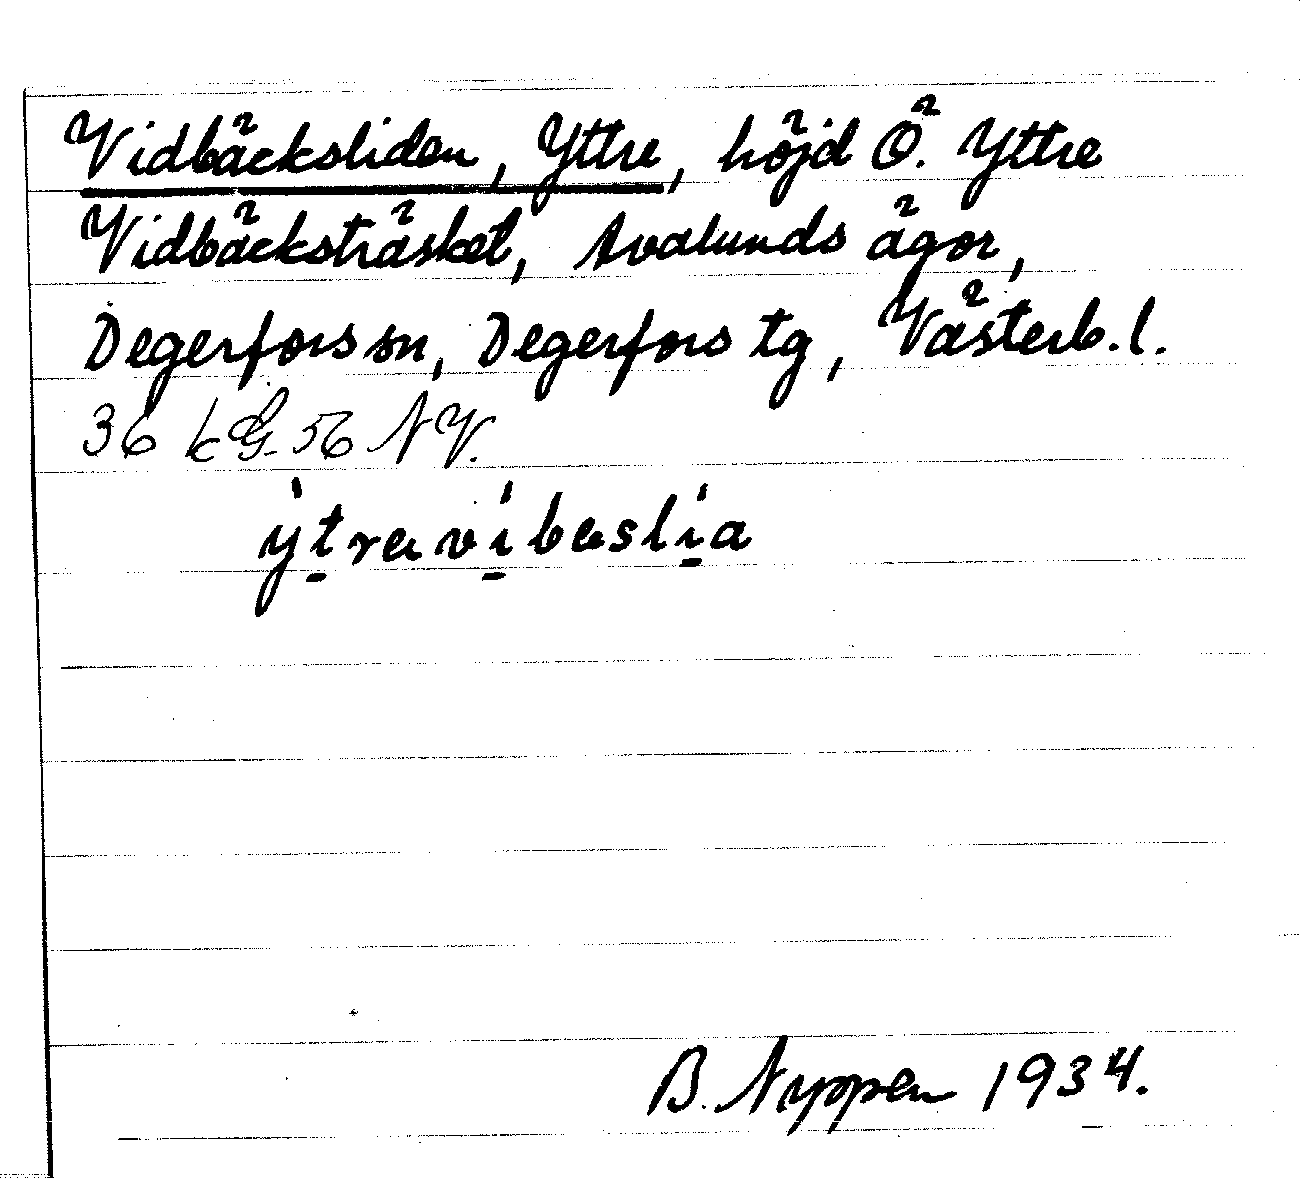 Vidbäcksliden, Yttre, höjd Ö. Yttre
Vidbäckträsket, Avalunds ägor,
Degerfors sn, Degerfors tg, Västerb. l.
36 kG. 56 NV.
ýtravíbaslía
B. Nyppen 1934.